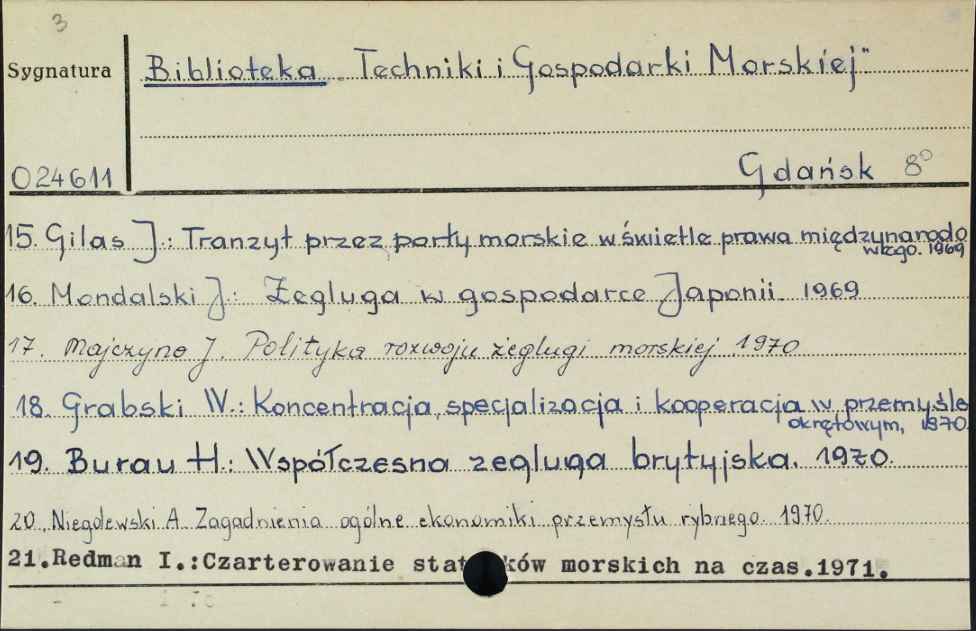 3
Sygnatura
Biblioteka „Techniki i Gospodarki Morskiej"
024611
Gdańsk 8°
15. Gilas J.: Tranzyt przez porty morskie w świetle prawa międzynarodo
wego. 1969
16. Mondalski J.: Żegluga w gospodarce Japonii. 1969
17. Majczyno J. Polityka rozwoju żeglugi morskiej 1970
18. Grabski W.: Koncentracja, specjalizacja i kooperacja w przemyśle
okrętowym, 1970.
19. Burau H.: Współczesna żegluga brytyjska. 1970.
20. Niegolewski A. Zagadnienia ogólne ekonomiki przemysłu rybnego. 1970.
21.Redman I.:Czarterowanie stat ków morskich na czas.1971.